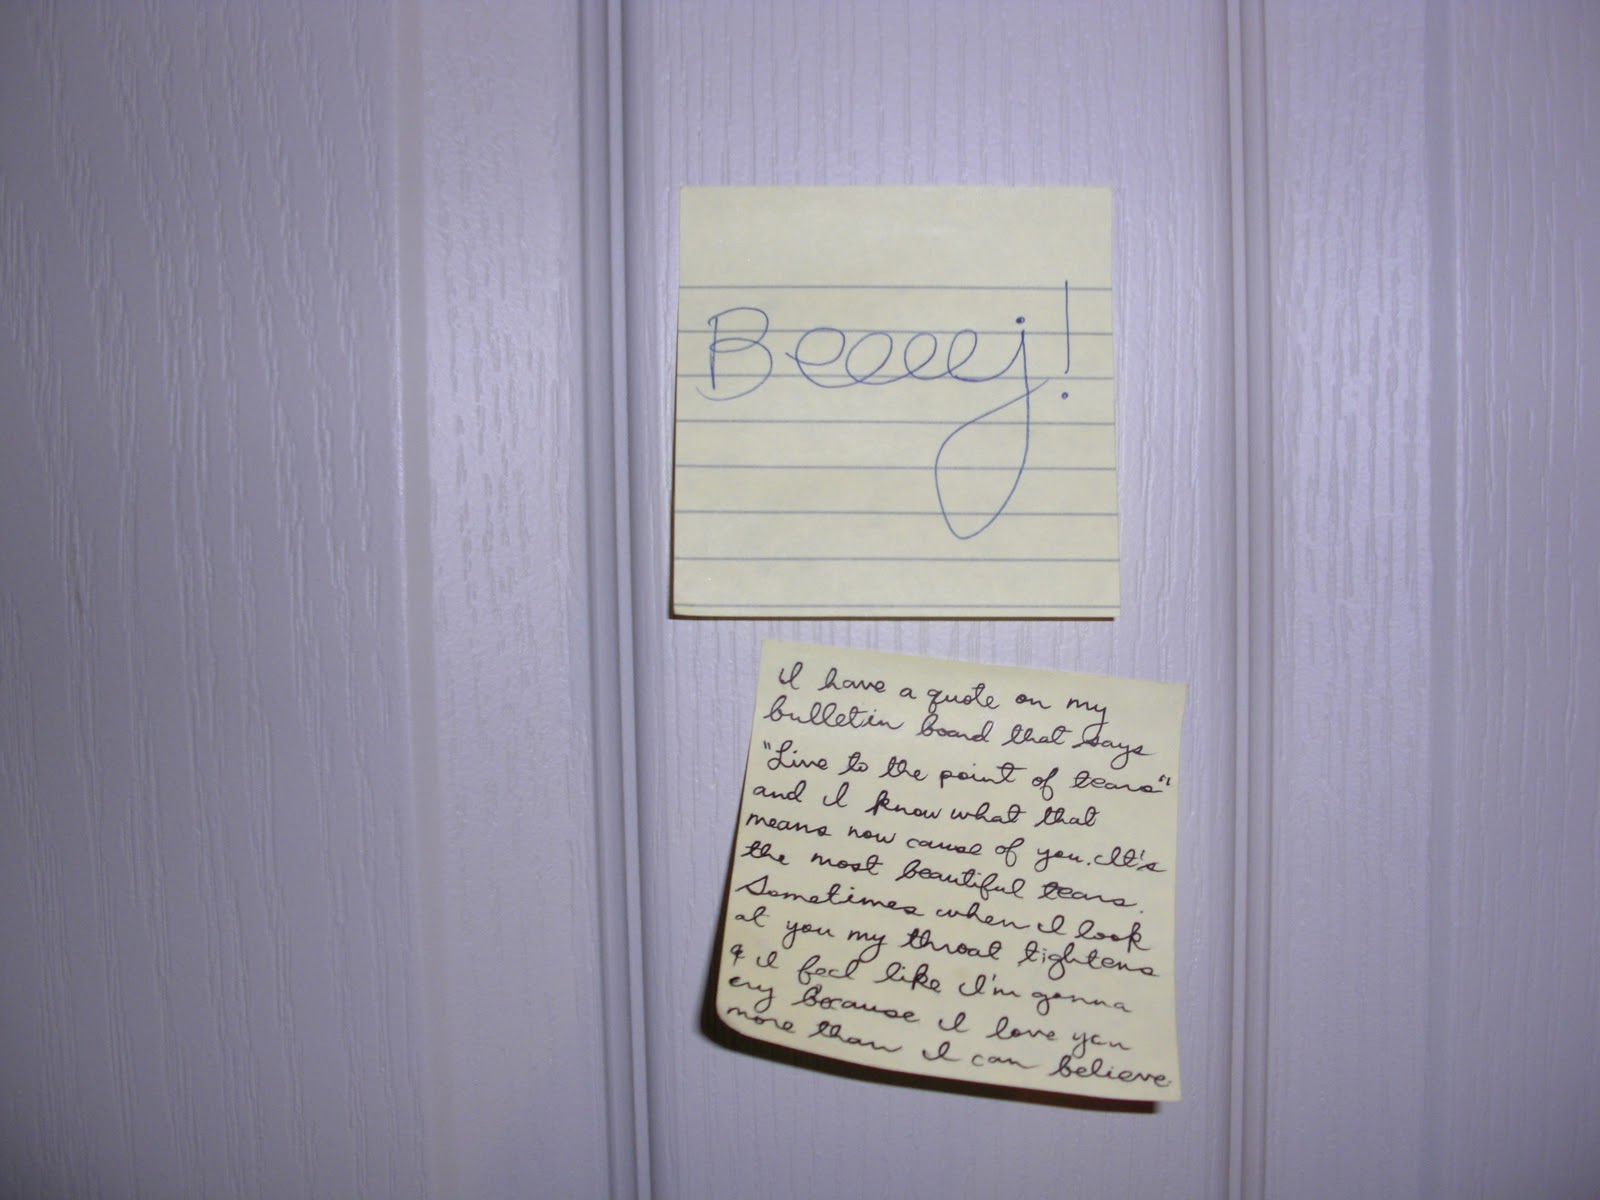 Beeeej!
I have a quote on my
bulletin board that says
"Live to the point of tears"
and I know what that
means now cause of you. It's
the most beautiful tears.
Sometimes when I look
at you my throat tightens
& I feel like I'm gonna
cry because I love you
more than I can believe